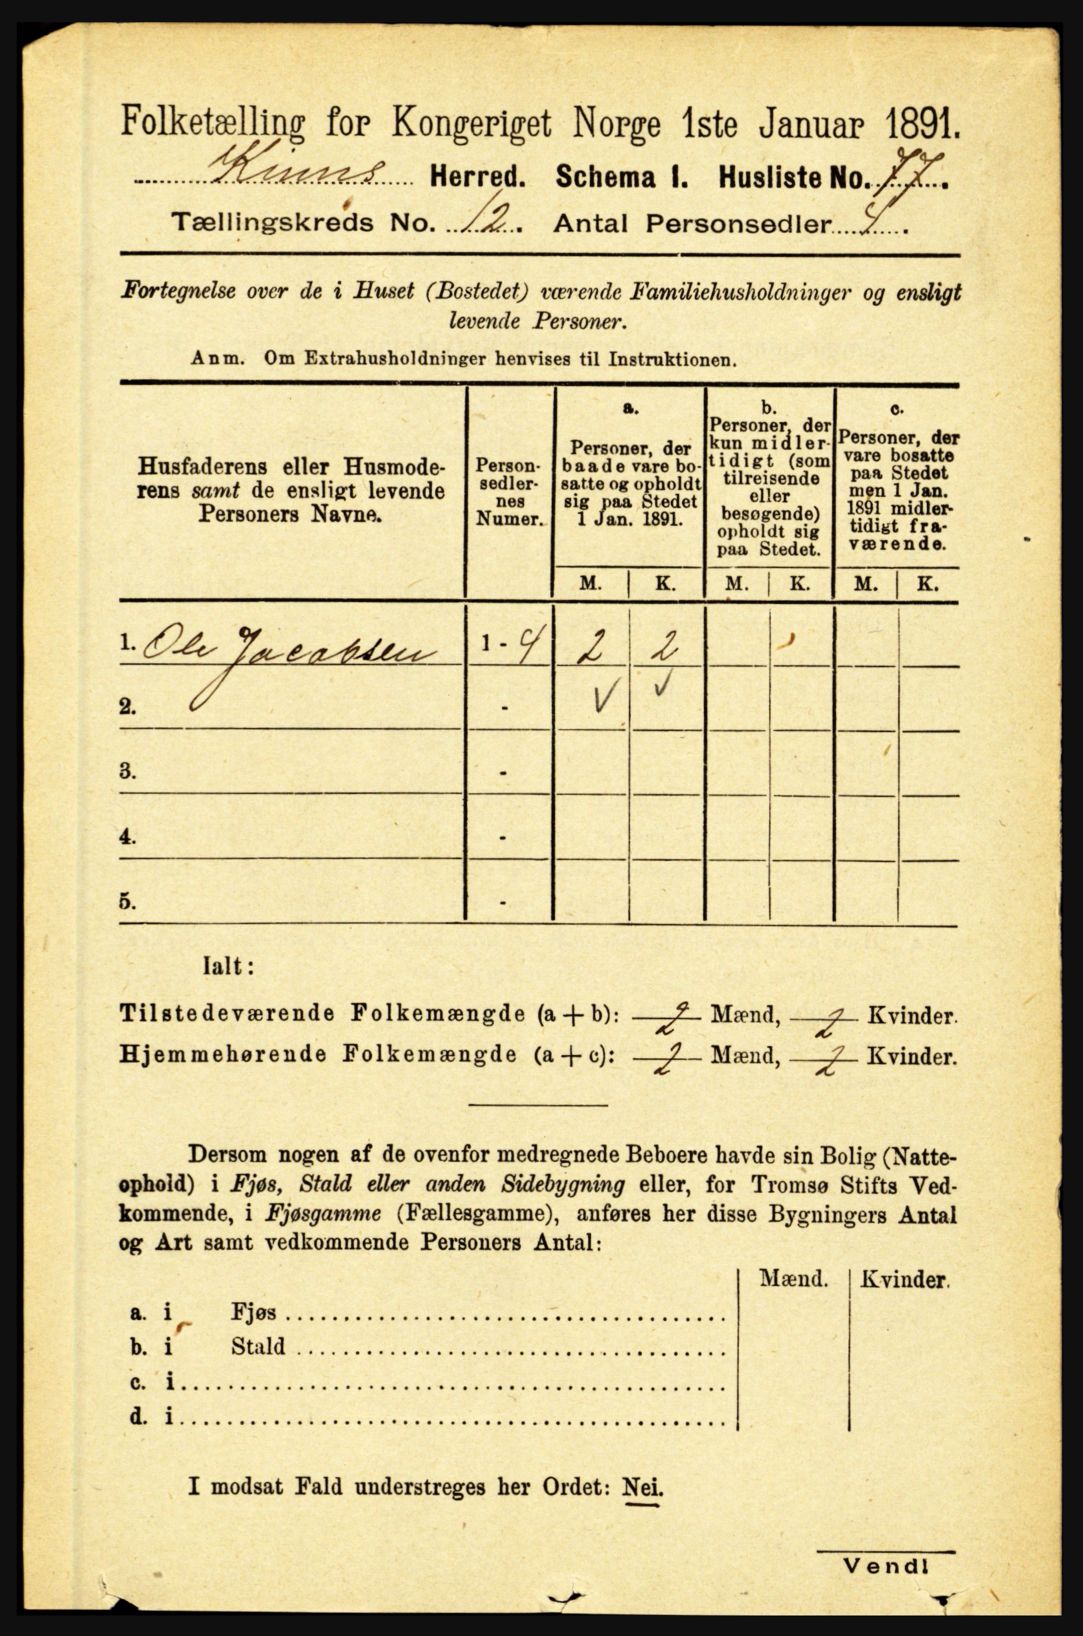 Folketælling for Kongeriget Norge 1ste Januar 1891.
Kinns Herred. Schema I. Husliste No. 77.
Tællingskreds No. 12. Antal Personsedler 4.
Fortegnelse over de i Huset (Bostedet) værende Familiehusholdninger og ensligt
levende Personer.
Anm. Om Extrahusholdninger henvises til Instruktionen.
Husfaderens eller Husmode-
rens samt de ensligt levende
Personers Navne.
Person-
sedler-
nes
Numer.
a.
Personer, der
baade vare bo-
satte og opholdt
sig paa Stedet
1 Jan. 1891.
b.
Personer, der
kun midler-
tidigt (som
tilreisende
eller
besøgende)
opholdt sig
paa Stedet.
c.
Personer, der
vare bosatte
paa Stedet
men 1 Jan.
1891 midler-
tidigt fra-
værende.
M. K. M. K. M. K.
1. Ole Jacobsen 1 - 4 2 2
2. - ✓ ✓
3. -
4. -
5. -
Ialt:
Tilstedeværende Folkemængde (a + b): 2 Mænd, 2 Kvinder.
Hjemmehørende Folkemængde (a + c): 2 Mænd, 2 Kvinder.
Dersom nogen af de ovenfor medregnede Beboere havde sin Bolig (Natte-
ophold) i Fjøs, Stald eller anden Sidebygning eller, for Tromsø Stifts Ved-
kommende, i Fjøsgamme (Fællesgamme), anføres her disse Bygningers Antal
og Art samt vedkommende Personers Antal:
Mænd. Kvinder.
a. i Fjøs
b. i Stald
c. i
d. i
I modsat Fald understreges her Ordet: Nei.
Vend!